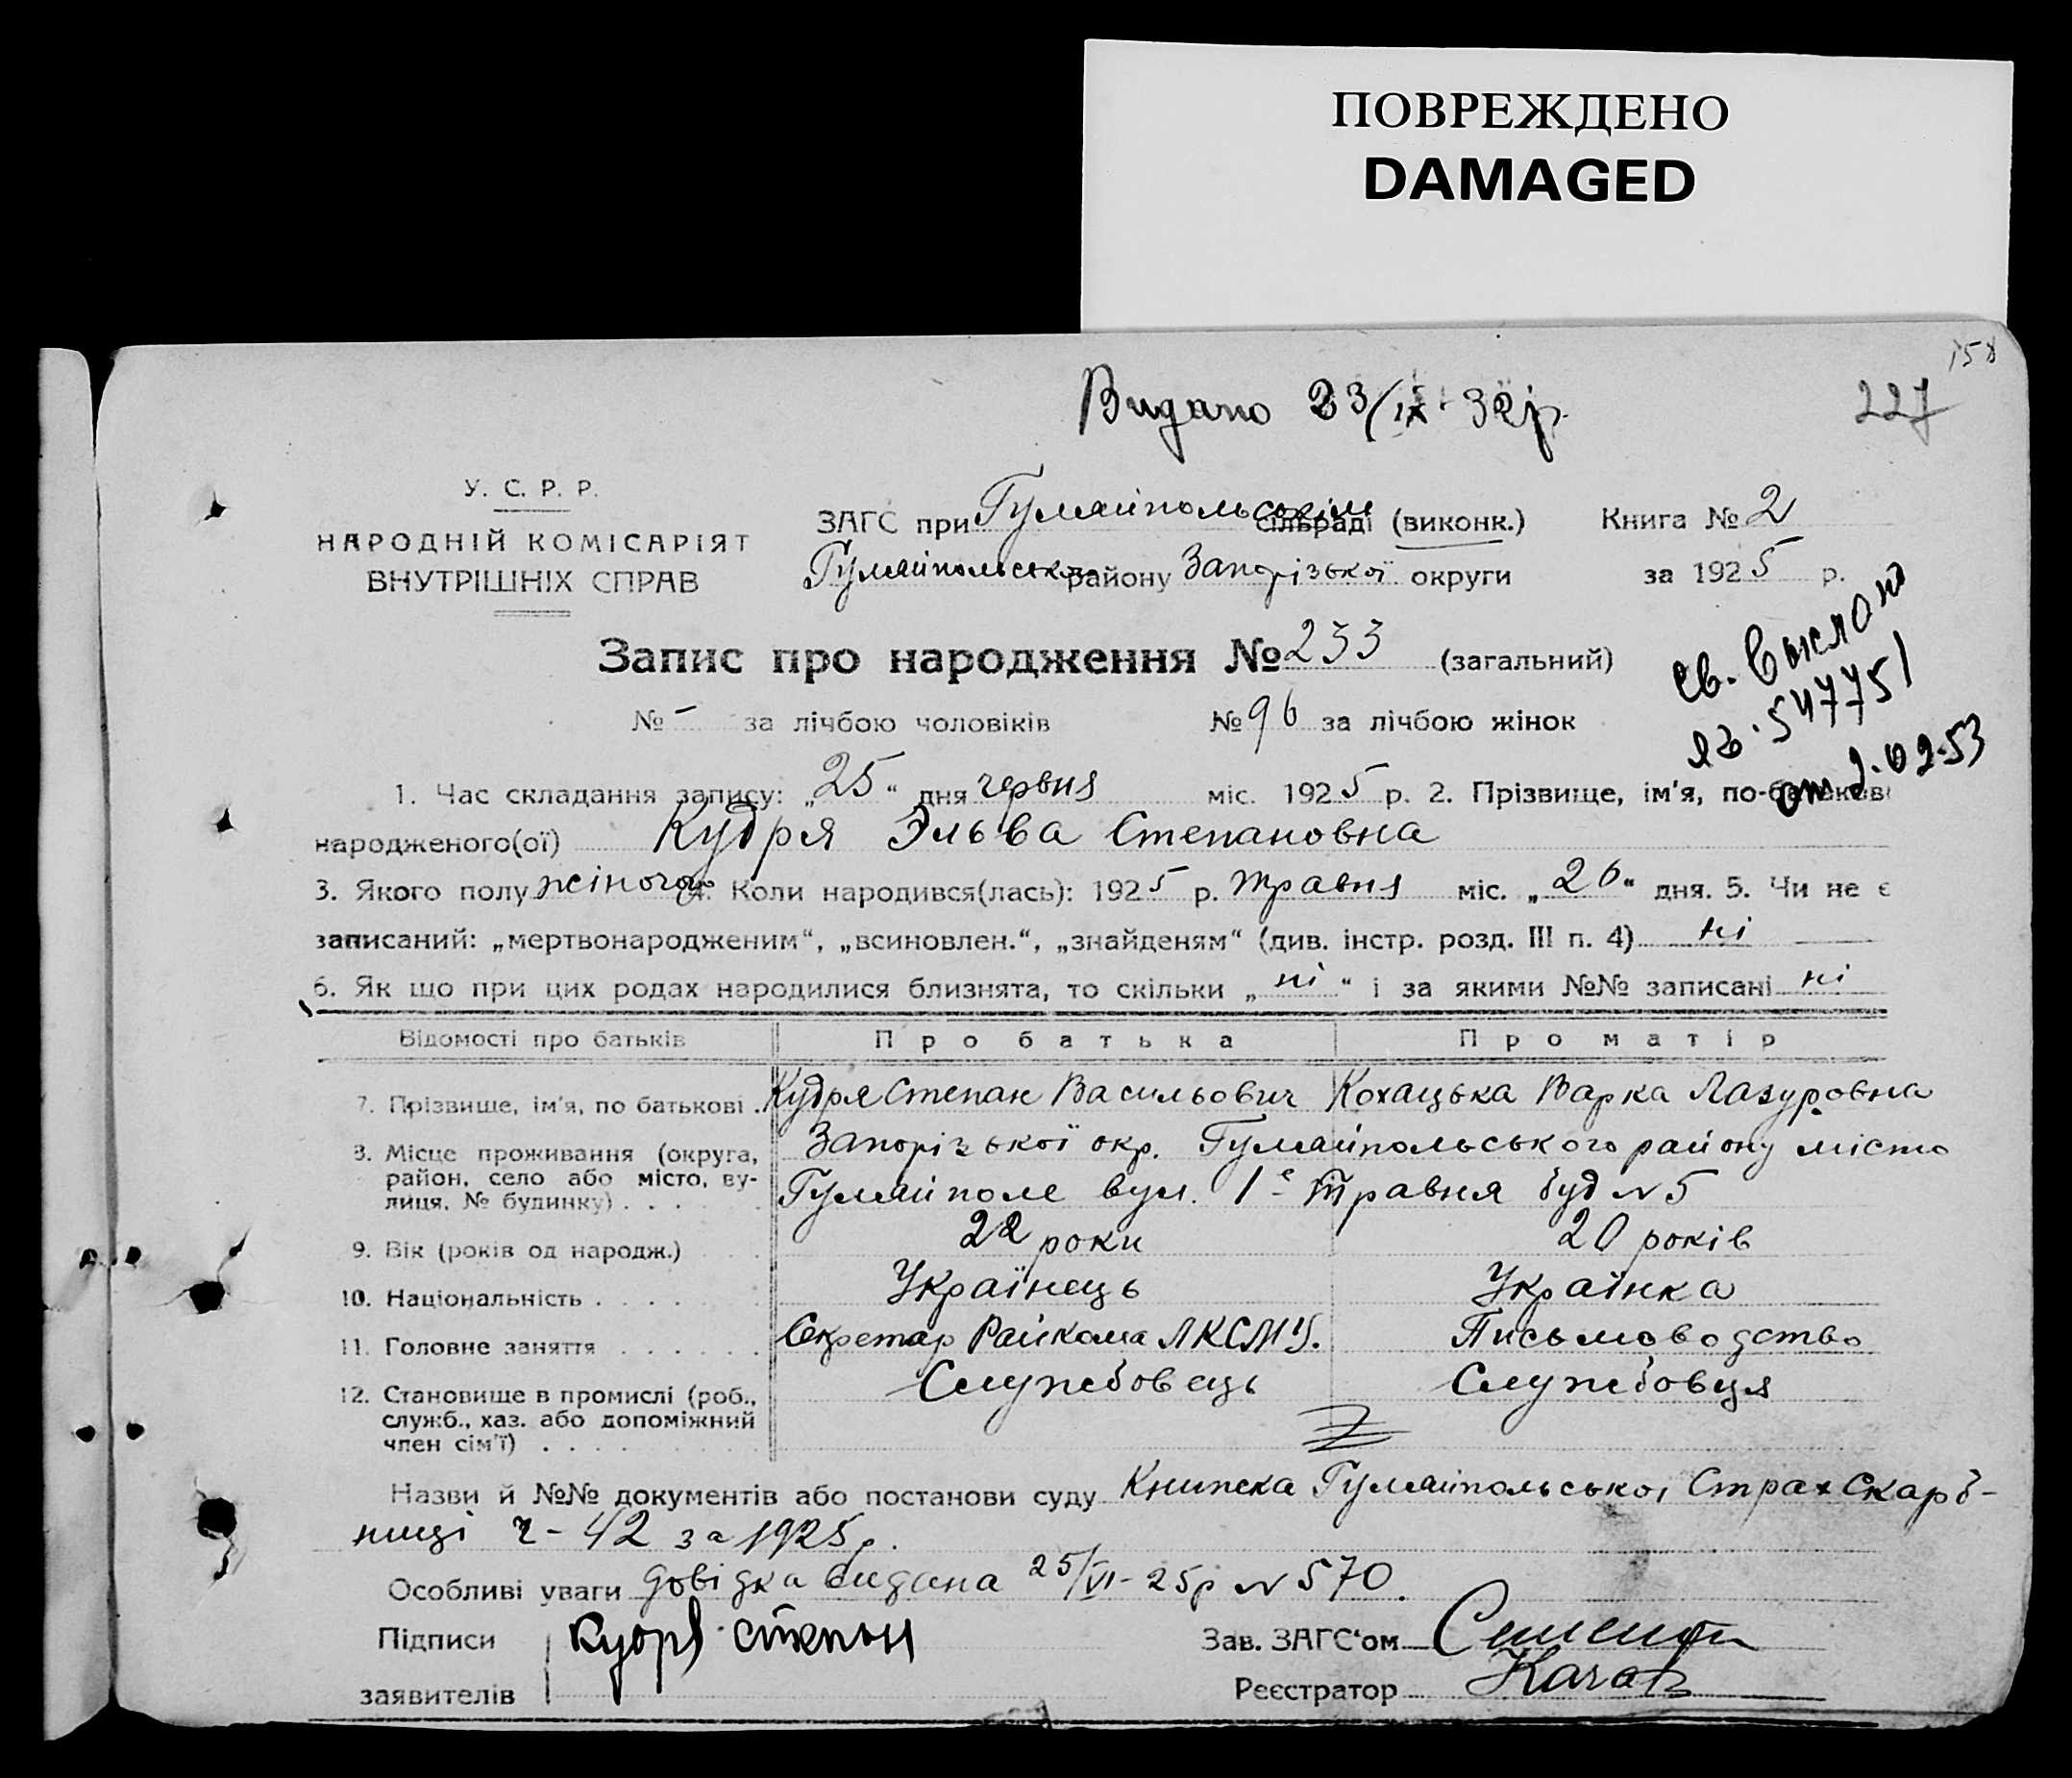 ПОВРЕЖДЕНО
DAMAGED
158
Видано 23/ІХ 32 р.
227
У. С. Р. Р.
НАРОДНІЙ КОМІСАРІЯТ
ВНУТРІШНІХ СПРАВ
ЗАГС при Гуляйпольськім сільраді (виконк.) Книга № 2
Гуляйпольськ району Запорізької округи за 1925 р.
Запис про народження № 233 (загальний)
св. выслано
яв. 547751
от 2.02.53
№ – за лічбою чоловіків № 96 за лічбою жінок
1. Час складання запису: „25“ дня червня міс. 1925 р. 2. Прізвище, ім'я, по-батькові
народженого(ої) Кудря Эльва Степановна
3. Якого полу жіночого 4. Коли народився(лась): 1925 р. травня міс. „26“ дня. 5. Чи не є
записаний: „мертвонародженим“, „всиновлен.“, „знайденям“ (див. інстр. розд. III п. 4) ні
6. Як що при цих родах народилися близнята, то скільки „ні“ і за якими №№ записані ні
Відомості про батьків Про батька Про матір
7. Прізвище, ім'я, по батькові . Кудря Степан Васильович Кохацька Варка Лазуровна
8. Місце проживання (округа, район, село або місто, вулиця, № будинку) . . . Запорізької окр. Гуляйпольського району місто
Гуляйполе вул. 1е Травня буд № 5
9. Вік (років од народж.) 22 роки 20 років
10. Національність . . . . . Українець Українка
11. Головне заняття . . . . . . Секретар Райкома ЛКСМУ. Письмоводство
12. Становище в промислі (роб., служб., хаз. або допоміжний член сім'ї) . . . . . . . Службовець Службовця
Назви й №№ документів або постанови суду Книжка Гуляйпольської СтрахСкарб-
ниці ч – 42 за 1925 р.
Особливі уваги довідка видана 25/VI – 25 р № 570.
Підписи Кудря Степан Зав. ЗАГС'ом
заявителів Реєстратор